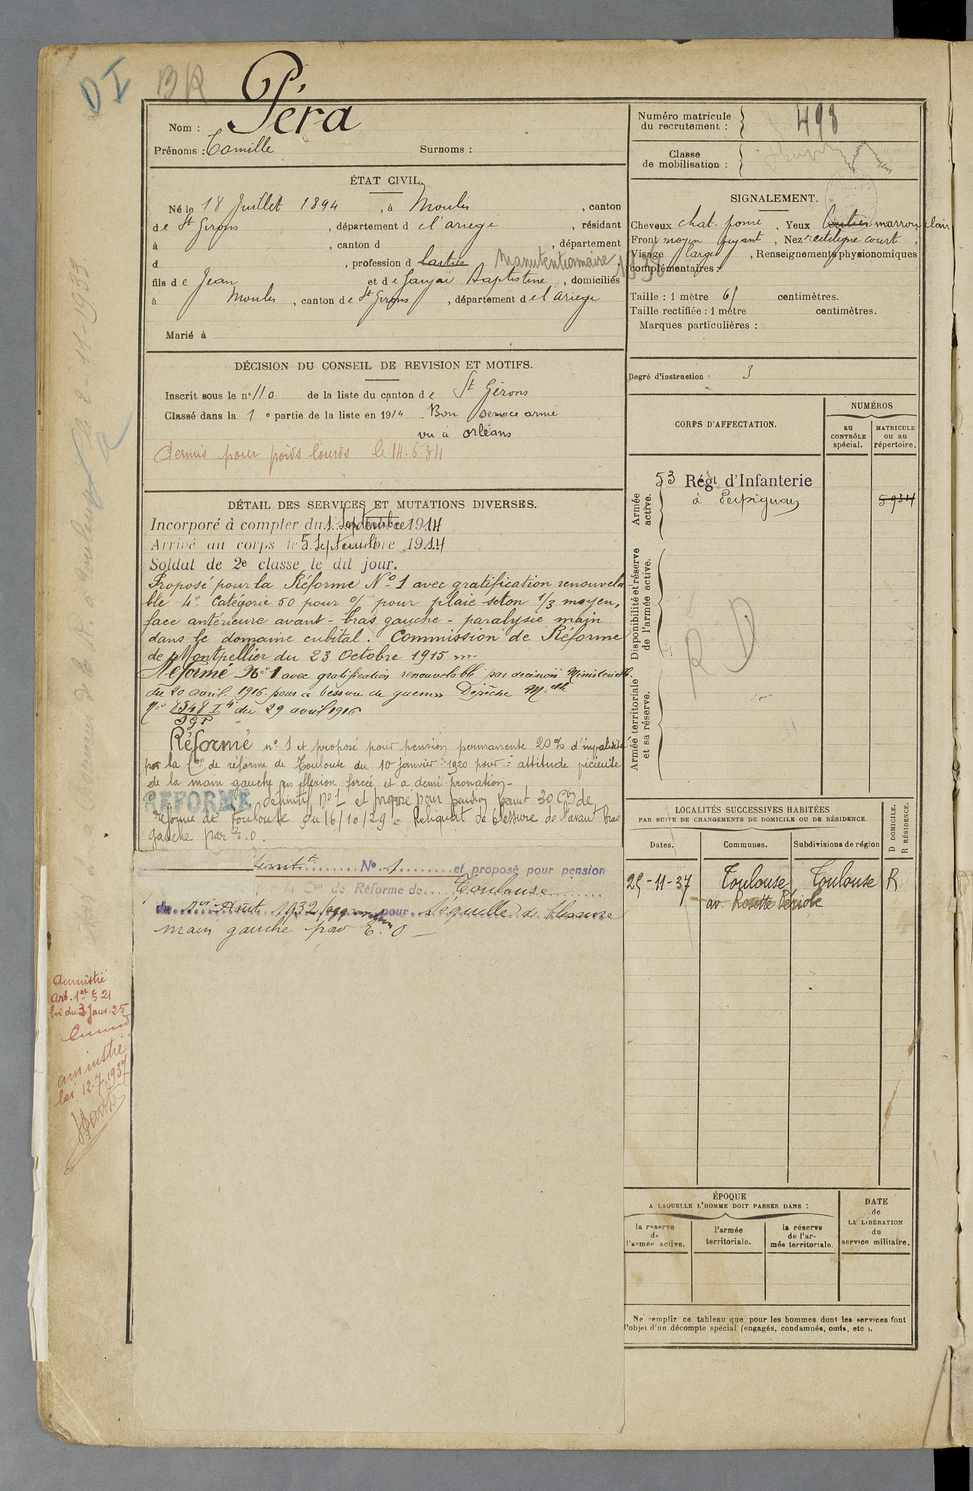 DI
BR
Nom : Péra
Prénoms : Camille Surnoms :
ÉTAT CIVIL.
Né le 18 Juillet 1894, à Moulis, canton
de St Girons, département d e l'ariege, résidant
à , canton d , département
d , profession d Manutentionnaire
fils d e Jean et d e Baptistine, domiciliés
à Moulis, canton d e St Girons, département d e l'Ariege
Marié à
DÉCISION DU CONSEIL DE REVISION ET MOTIFS.
Inscrit sous le n° 110 de la liste du canton d e St Girons
Classé dans la 1 e partie de la liste en 1914 . Bon service armé
vu à orléans
permis pour poids lourds le 14.6.34
DÉTAIL DES SERVICES ET MUTATIONS DIVERSES.
Incorporé à compter du 1 Septembre 1914
Arrivé au corps le 5 Septembre 1914
Soldat de 2e classe le dit jour.
Proposé pour la Réforme N° 1 avec gratification renouvela
ble 4e Catégorie 50 pour % pour plaie seton 1/3 moyen,
face antérieure avant-bras gauche - paralysie main
dans le domaine cubital. Commission de Réforme
de Montpellier du 23 Octobre 1915
Réformé N° 1 avec gratification renouvelable par décision Ministérielle
du 20 avril 1916 pour blessure de guerre Dépêche Melle
du 29 avril 1916
Réformé n° 1 et proposé pour pension permanente 20% d'invalidité
par la Con de réforme de Toulouse du 10 janvier 1920 pour : attitude vicieuse
de la main gauche en flexion forcée et a demi pronation -
RÉFORMÉ définitif n° 1 et proposé pour pension perm 30 Con de
réforme de Toulouse du 16/10/29 - Reliquat de blessure de l'avant bras
gauche par E.O
N° 1 et proposé pour pension
Con de Réforme de Toulouse
du Août 1932 pour Séquelle de blessure
main gauche par E.O -
amnistié
Art. 1er § 21
loi du 3 Janv. 25
amnistié
loi 12.7.1937
Numéro matricule
du recrutement : 498
Classe
de mobilisation :
SIGNALEMENT.
Cheveux chat. foncé, Yeux marron clair
Front moyen fuyant, Nez rectiligne court,
Visage large, Renseignements physionomiques
complémentaires :
Taille : 1 mètre 61 centimètres.
Taille rectifiée : 1 mètre centimètres.
Marques particulières :
Degré d'instruction : 3
CORPS D'AFFECTATION.
NUMÉROS
au
CONTRÔLE
spécial.
MATRICULE
ou au
répertoire.
Armée
active.
53 Régt d'Infanterie
à Perpignan
5934
Disponibilité et réserve
de l'armée active.
RD
Armée territoriale
et sa réserve.
LOCALITÉS SUCCESSIVES HABITÉES
PAR SUITE DE CHANGEMENTS DE DOMICILE OU DE RÉSIDENCE.
Dates. Communes. Subdivisions de région
D DOMICILE.
R RÉSIDENCE.
25-11-37 Toulouse Toulouse R
av. Périole
ÉPOQUE
A LAQUELLE L'HOMME DOIT PASSER DANS :
la réserve
de
l'armée active.
l'armée
territoriale.
la réserve
de l'ar-
mée territoriale.
DATE
de
LA LIBÉRATION
du
service militaire.
Ne remplir ce tableau que pour les hommes dont les services font
l'objet d'un décompte spécial (engagés, condamnés, omis, etc.).